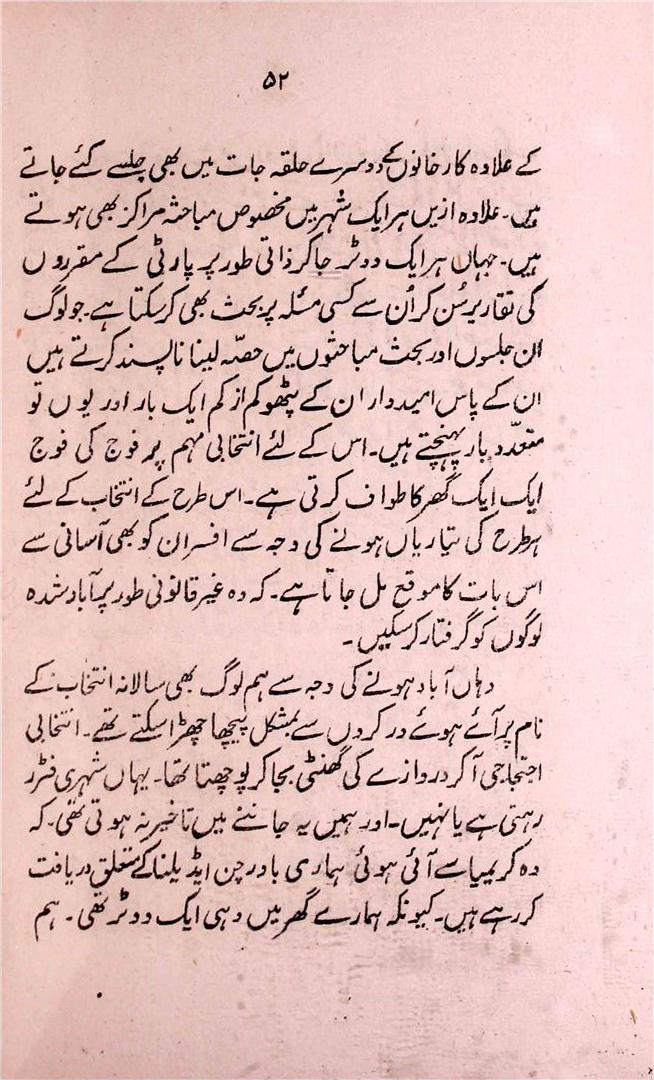 ۵۲
کے علاوہ کارخانوں کے دوسرے حلقہ جات میں بھی جلسے کئے جاتے
ہیں۔ علاوہ ازیں ہر ایک شہر میں مخصوص مباحثہ مراکز بھی ہوتے
ہیں۔ جہاں ہر ایک ووٹر جا کر ذاتی طور پر پارٹی کے مقرروں
کی تقاریر سُن کر اُن سے کسی مسئلہ پر بحث بھی کر سکتا ہے۔ جو لوگ
ان جلسوں اور بحث مباحثوں میں حصّہ لینا ناپسند کرتے ہیں
ان کے پاس امیدوار ان کے پٹھو کم از کم ایک بار اور یوں تو
متعدّد بار پہنچتے ہیں۔ اس کے لئے انتخابی مہم پر فوج کی فوج
ایک ایک گھر کا طواف کرتی ہے۔ اس طرح کے انتخاب کے لئے
ہر طرح کی تیاریاں ہونے کی وجہ سے افسران کو بھی آسانی سے
اس بات کا موقع مل جاتا ہے۔ کہ وہ غیر قانونی طور پر آباد شدہ
لوگوں کو گرفتار کر سکیں۔
وہاں آباد ہونے کی وجہ سے ہم لوگ بھی سالانہ انتخاب کے
نام پر آئے ہوئے ورکروں سے بمشکل پیچھا چھڑا سکتے تھے۔ انتخابی
احتجاجی آ کر دروازے کی گھنٹی بجا کر پوچھتا تھا۔ یہاں شہری فنڑر
رہتی ہے یا نہیں۔ اور ہمیں یہ جاننے میں تاخیر نہ ہوتی تھی۔ کہ
وہ کریمیا سے آئی ہوئی ہماری باورچن ایڈیلنا کے متعلق دریافت
کر رہے ہیں۔ کیونکہ ہمارے گھر میں وہی ایک ووٹر تھی۔ ہم